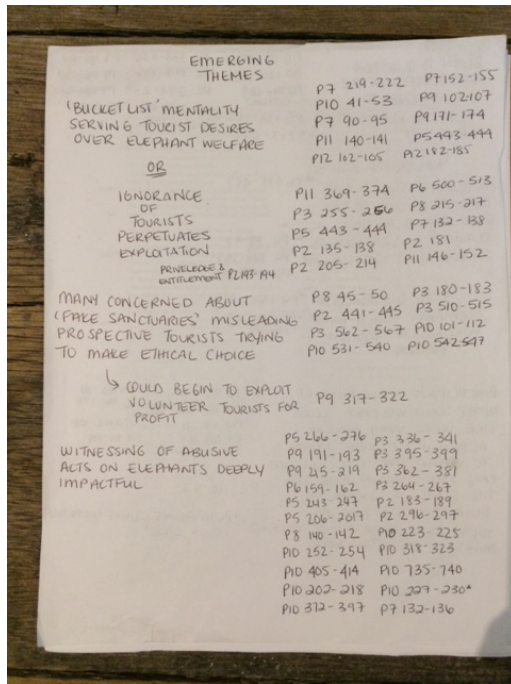 EMERGING
THEMES
'BUCKET LIST' MENTALITY
SERVING TOURIST DESIRES
OVER ELEPHANT WELFARE
P7 219-222 P7 152-155
P10 41-53 P9 102-107
P7 90-95 P9 171-174
P11 140-141 P5 443-444
P12 102-105 P12 182-185
OR
IGNORANCE
OF
TOURISTS
PERPETUATES
EXPLOITATION
PRIVELEDGE &
ENTITLEMENT P2 193-194
P11 369-374 P6 500-513
P3 255-256 P8 215-217
P5 443-444 P7 132-138
P2 135-138 P2 181
P2 205-214 P11 146-152
MANY CONCERNED ABOUT
'FAKE SANCTUARIES' MISLEADING
PROSPECTIVE TOURISTS TRYING
TO MAKE ETHICAL CHOICE
P8 45-50 P3 180-183
P2 441-445 P3 510-515
P3 562-567 P10 101-112
P10 531-540 P10 542-547
↳ COULD BEGIN TO EXPLOIT
VOLUNTEER TOURISTS FOR
PROFIT
P9 317-322
WITNESSING OF ABUSIVE
ACTS ON ELEPHANTS DEEPLY
IMPACTFUL
P5 266-276 P3 336-341
P9 191-193 P3 395-399
P9 215-219 P3 362-381
P6 159-162 P3 264-267
P5 243-247 P2 183-189
P5 206-2017 P2 296-297
P8 140-142 P10 223-225
P10 252-254 P10 318-323
P10 405-414 P10 735-740
P10 202-218 P10 227-230*
P10 372-397 P7 132-136